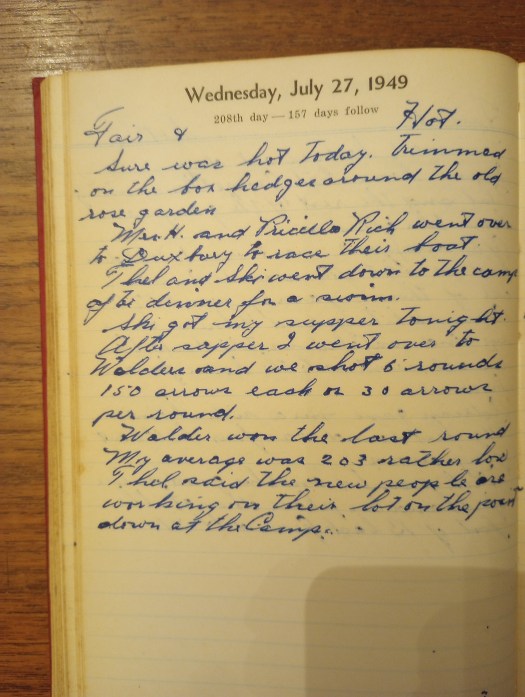 Wednesday, July 27, 1949
208th day — 157 days follow
Fair & Hot.
Sure was hot today. Trimmed
on the box hedges around the old
rose garden
Mrs. H. and Pricilla Rich went over
to Duxbury to race their boat.
Thel and Ski went down to the camp
after dinner for a swim.
Ski got my supper tonight.
After supper I went over to
Walders and we shot 5 rounds
150 arrows each or 30 arrows
per round.
Walder won the last round
My average was 203 rather low
Thel said the new people are
working on their lot on the point
down at the Camp.